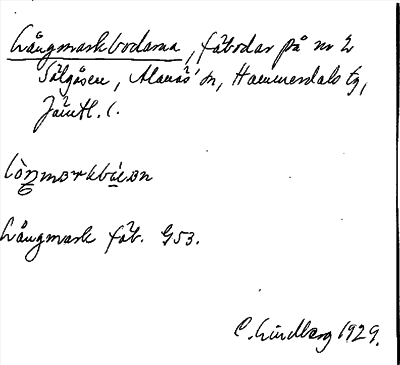 Långmarkbodarna, fäbodar på nr 2
Sälgåsen, Alanäs' sn, Hammerdals tg,
Jämtl. l.
Långmark fäb. G53.
C. Lindberg 1929.